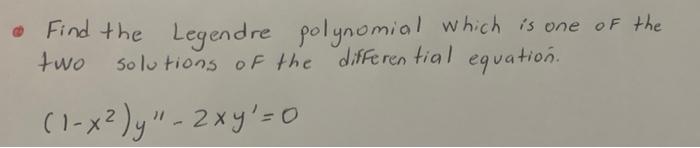 Find the Legendre polynomial which is one of the
two solutions of the differential equation.
(1-x²)y" - 2xy' = 0